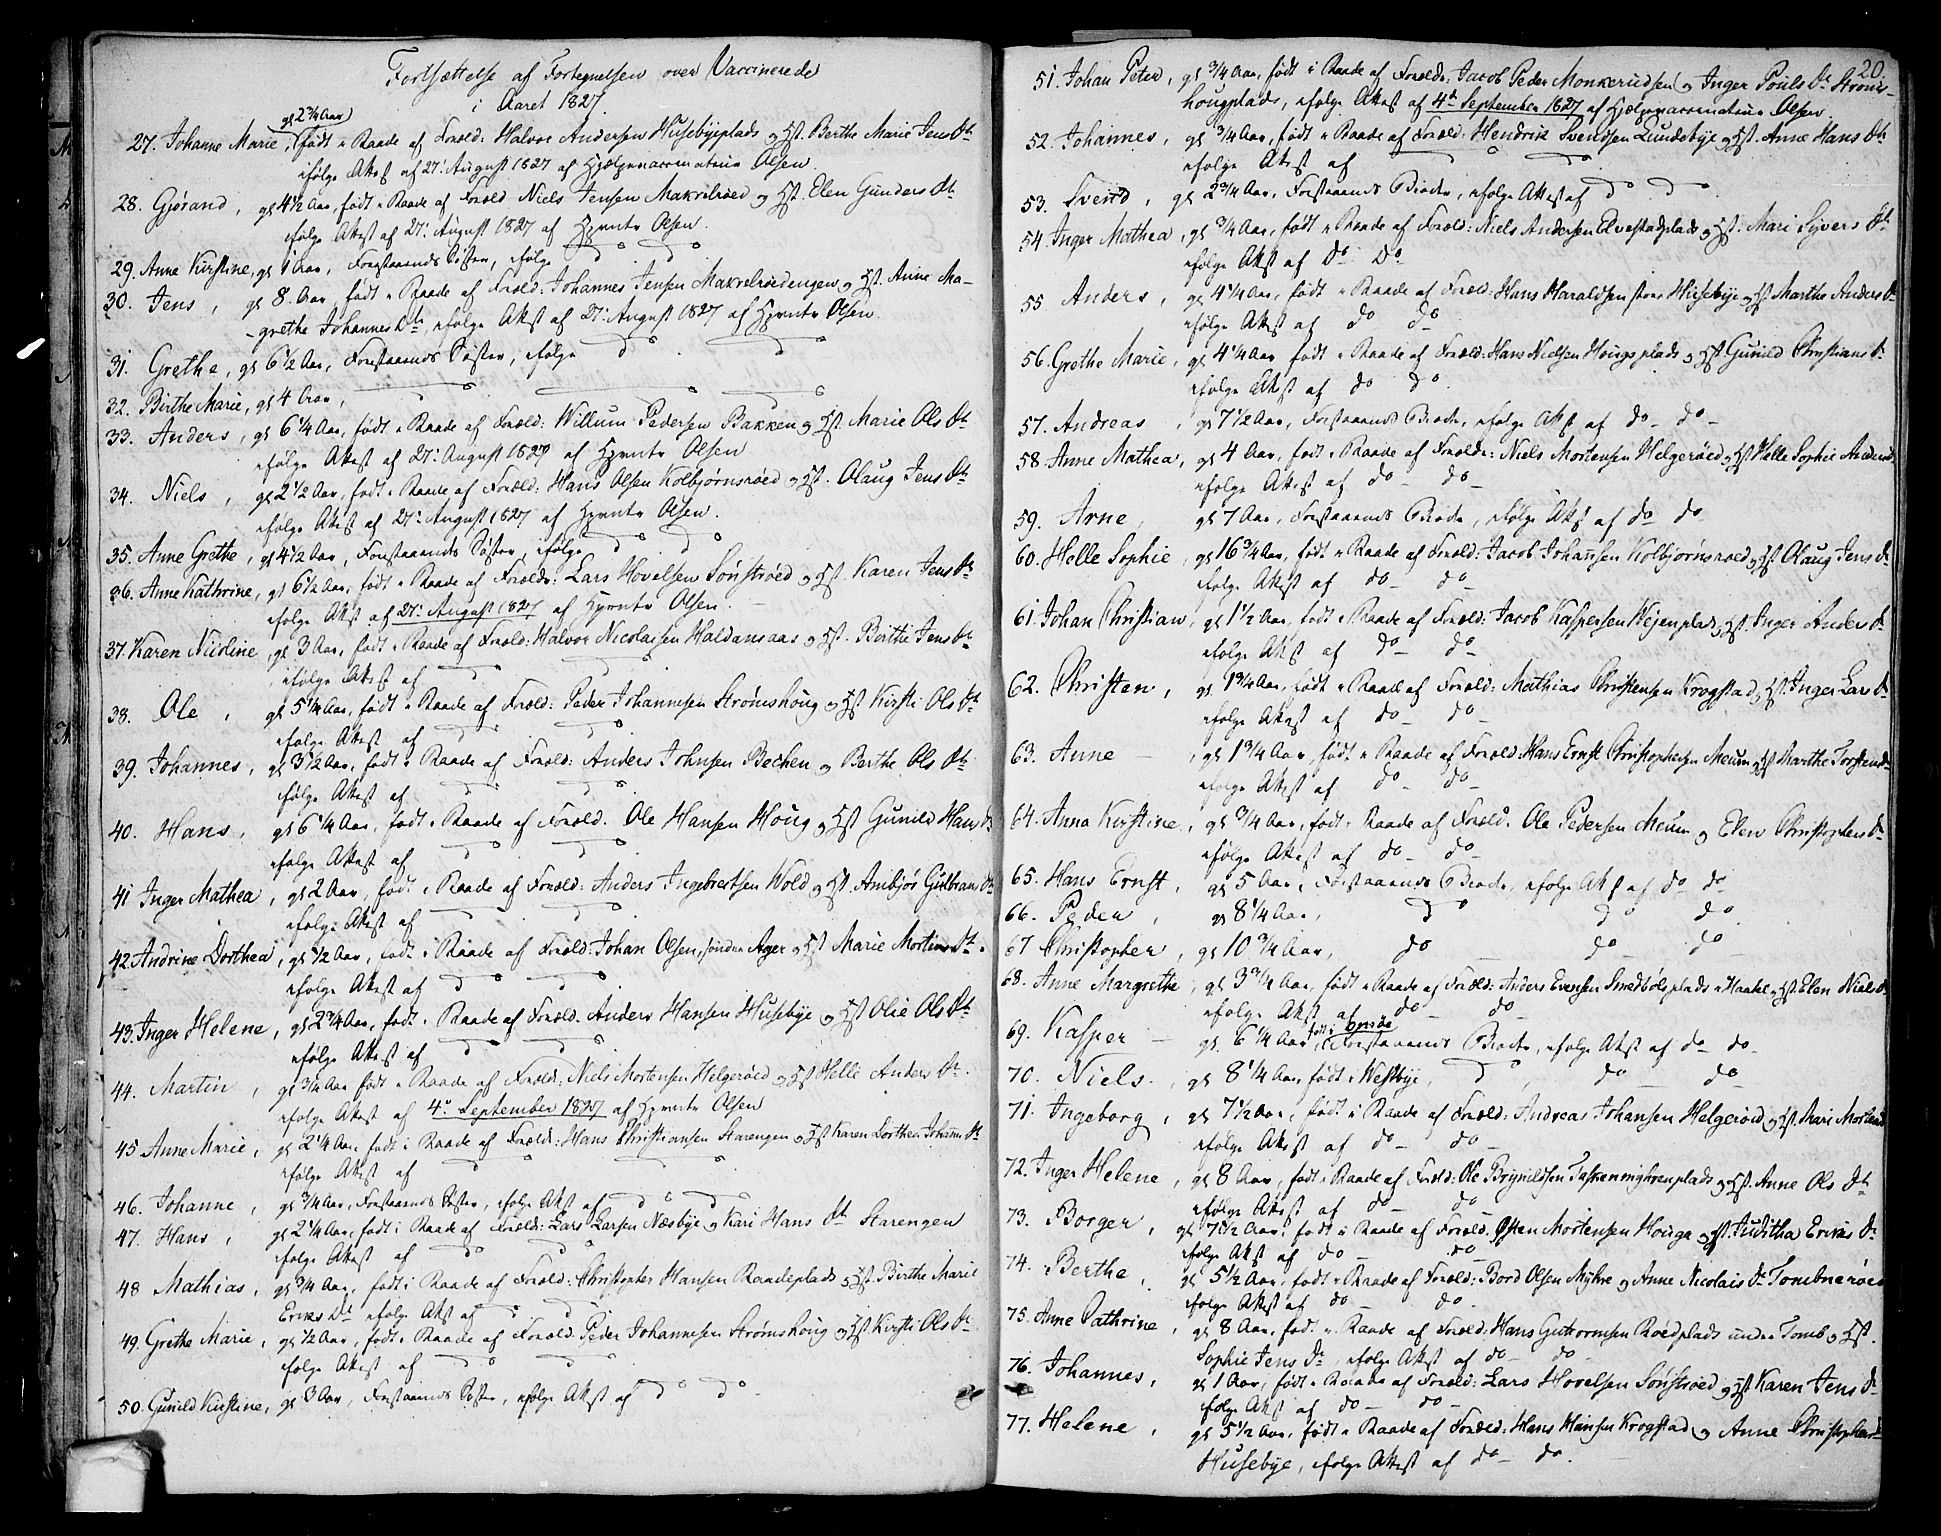 Fortsættelse af Fortegnelsen over Vaccinerede
i Aaret 1827
gl 2 3/4 Aar
27. Johanne Marie, født i Raade af Foræld: Halvor Andersen Husebyeplads og Hst. Berthe Marie Jens Dr
ifølge Attest af 27. August 1827 af Hjælpevaccinateur Olsen.
28. Gjørand, gl 4 1/2 Aar, født i Raade af Foræld Niels Jensen Makrelrøed og Hst. Elen Gunders Dr
ifølge Attest af 27. August 1827 af Hpvntr Olsen.
29. Anne Kirstine, gl 1 Aar, Forestaaends Søster, ifølge do do
30. Jens, gl 8 Aar, født i Raade af Foræld: Johannes Jensen Makrelrøedengen og Hst. Anne Ma-
-grethe Johannes Dr, ifølge Attst af 27. August 1827 af Hpvntr Olsen.
31. Grethe, gl 6 1/2 Aar, Forestaaends Søster, ifølge do do
32. Birthe Marie, gl 4 Aar, do do do
33. Anders, gl 6 1/4 Aar, født i Raade af Foræld: Willum Pedersen Bakken og Hst. Marie Ols Dr
ifølge Attest af 27. August 1827 af Hpvntr Olsen
34. Niels, gl 2 1/2 Aar, født i Raade af Foræld: Hans Olsen Kolbjørnsrøed og Hst. Olaug Jens Dr
ifølge Attest af 27. August 1827 af Hpvntr Olsen.
35. Anne Grethe, gl 4 1/2 Aar, Forestaaends Søster, ifølge do do
36. Anne Kathrine, gl 6 1/2 Aar, født i Raade af Foræld: Lars Hovelsen Sønstrøed og Hst. Karen Jens Dr
ifølge Attst af 27. August 1827 af Hpvntr Olsen.
37. Karen Nicoline, gl 3 Aar, født i Raade af Foræld: Halvor Nicolaisen Haldansaas og Hst. Birthe Jens Dr
ifølge Attest af do do
38. Ole, gl 5 1/4 Aar, født i Raade af Foræld: Peder Johannesen Strømshoug og Hst Kirsti Ols Dr
ifølge Attest af do do
39. Johannes, gl 3 1/2 Aar, født i Raade af Foræld: Anders Johnsen Bechen og Berthe Ols Dr
ifølge Attest af do do
40. Hans, gl 6 1/4 Aar, født i Raade af Foræld. Ole Hansen Houg og Hst Gunild Hans Dr
ifølge Attest af do do
41 Inger Mathea, gl 2 Aar, født i Raade af Foræld: Anders Ingebretsen Wold og Hst. Anibjør Gulbrans Dr
ifølge Attest af do do
42. Andrine Dorthea, gl 1/2 Aar, født i Raade af Foræld: Johan Olsen, søndre Ager og Hst Marie Mortins Dr.
ifølge Attest af do do
43. Inger Helene, gl 2 3/4 Aar, født i Raade af Foræld. Anders Hansen Husebye og Hst Olie Ols Dr
ifølge Attest af do do
44. Martin, gl 3/4 Aar født i Raade af Foræld: Niels Mortensen Helgerøed og Hst Helle Anders Dr.
ifølge Attest af 4de September 1827 af Hpvntr Olsen
45 Anne Marie, gl 2 1/4 Aar, født i Raade af Foræld: Hans Christiansen Starengen og Hst Karen Dorthea Johann Dr
ifølge Attest af do do
46. Johanne, gl 3/4 Aar, Forestaaends Søster, ifølge Attst af do do
47. Hans, gl 2 1/4 Aar, født i Raade af Foræld: Lars Larsen Næsbye og Kari Hans Dr Starengen
ifølge Attest af do do
48 Mathias, gl 3/4 Aar, født i Raade af Foræld: Christopher Hansen Raadeplads og Hst Birthe Marie
Eriks Dr ifølge Attst af do do
49. Grethe Marie, gl 1/2 Aar, født i Raade af Foræld: Peder Johannesen Strømshoug og Hst Kirsti Ols Dr
ifølge Attest af do do
50. Gunild Kirstine, gl 3 Aar, Forestaaends Søster, ifølge Attest af do do
20.
51. Johan Peter, gl 3/4 Aar, født i Raade af Foræld: Jacob Peder Monkerudsen og Inger Pouls Dr Strøms-
hougplads, ifølge Attest af 4de September 1827 af Hjælpevaccinateur Olsen.
52. Johannes, gl 3/4 Aar, født i Raade af Foræld: Hendrik Svendsen Lundebye og Hst. Anne Hans Dr
ifølge Attest af do do
53. Svend, gl 2 3/4 Aar, Forestaaends Broder, ifølge Attest af do do
54. Inger Mathea, gl 3/4 Aar, født i Raade af Foræld: Niels Andersen Elvestadplads og Hst: Mari Syvers Dr
ifølge Attst af Do Do
55 Anders, gl 4 1/4 Aar, født i Raade af Foræld: Hans Haraldsen store Husebye og Hst Marthe Anders Dr
ifølge Attest af do do
56. Grethe Marie, gl 4 1/4 Aar født i Raade af Foræld: Hans Nielsen Hougsplads og Hst. Gunild Christians Dr
ifølge Attest af do do.
57. Andreas, gl 7 1/2 Aar, Forestaaends Broder, ifølge Attst af do- do-
58. Anne Mathea, gl 4 Aar, født i Raade af Foræld: Niels Mortensen Helgerøed og Hst Helle Sophie Anders Dr
ifølge Attest af do- do-
59. Arne, gl 7 Aar, Forestaaends Broder, ifølge Attst af do- do-
60. Helle Sophie, gl 16 3/4 Aar, født i Raade af Foræld: Jacob Johansen Kolbjørnsroed og Hst Olaug Jens Dr
ifølge Attest af do- do-
61. Johan Christian, gl 1 1/2 Aar, født i Raade af Foræld: Jacob Kaspersen Kejenplads og Hst. Inger Anders Dr
ifølge Attst af do- do-
62. Christen, gl 1 3/4 Aar, født i Raade af Foræld: Mathias Christensen Krogstad og Hst. Inger Lars Dr
ifølge Attest af do- do-
63. Anne, gl 1 3/4 Aar født i Raade af Foræld: Hans Ernst Christophersen Meum og Hst Marthe Torstens Dr
ifølge Attest af do- do-
64. Anna Kirstine, gl 3/4 Aar, født i Raade af Foræld. Ole Pedersen Meum og Elen Christophers Dr
ifølge Attest af do- do-
65. Hans Ernst, gl 5 Aar, Forestaaends Broder, ifølge Attst af do do-
66. Peder, gl 8 1/4 Aar, do do do
67 Christopher, gl 10 3/4 Aar, do- do- do-
68. Anne Margrethe, gl 3 3/4 Aar, født i Raade af Foræld: Anders Evensen Smedbølsplads i Haabøl og Hst. Elen Niels Dr
ifølge Attest af do- do-
69. Kasper, gl. 6 1/4 Aar, født i Onsøe, Forestaaends Broder, ifølge Attst af do- do-
70. Niels, gl 8 1/4 Aar, født i Westbye, do, do- do-
71. Ingeborg, gl 7 1/2 Aar, født i Raade af Foræld: Andreas Johansen Helgerøed og Hst. Mari Mortens Dr
ifølge Attest af do- do-
72. Inger Helene, gl 8 Aar, født i Raade af Foræld: Ole Brynildsen Taskenmyhrenplads og Hst. Anne Ols Dr
ifølge Attest af do- do-
73. Borger, gl 7 1/2 Aar, født i Raade af Foræld. Osten Mortensen Houge og Hst Juditha Eriks Dr
ifølge Attst af do- do
74. Berthe, gl 5 1/2 Aar, født i Raade af Foræld: Bord Olsen Myhre og Anne Nicolais Dr Tombnerøed
ifølge Attest af do- do.
75. Anne Cathrine, gl 8 Aar, født i Raade af Foræld: Hans Guttormsen Roedplads under Tomb og Hst.
Sophie Jens Dr, ifølge Attst af do- do-
76. Johannes, gl 1 Aar, født i Raade af Foræld: Lars Hovelsen Sønstrøed og Hst. Karen Jens Dr
ifølge Attst af do- do-
77. Helene, gl 5 1/2 Aar, født i Raade af Foræld: Hans Hansen Krogstad og Anne Christophers Dr
Husebye, ifølge Attest af do- do.